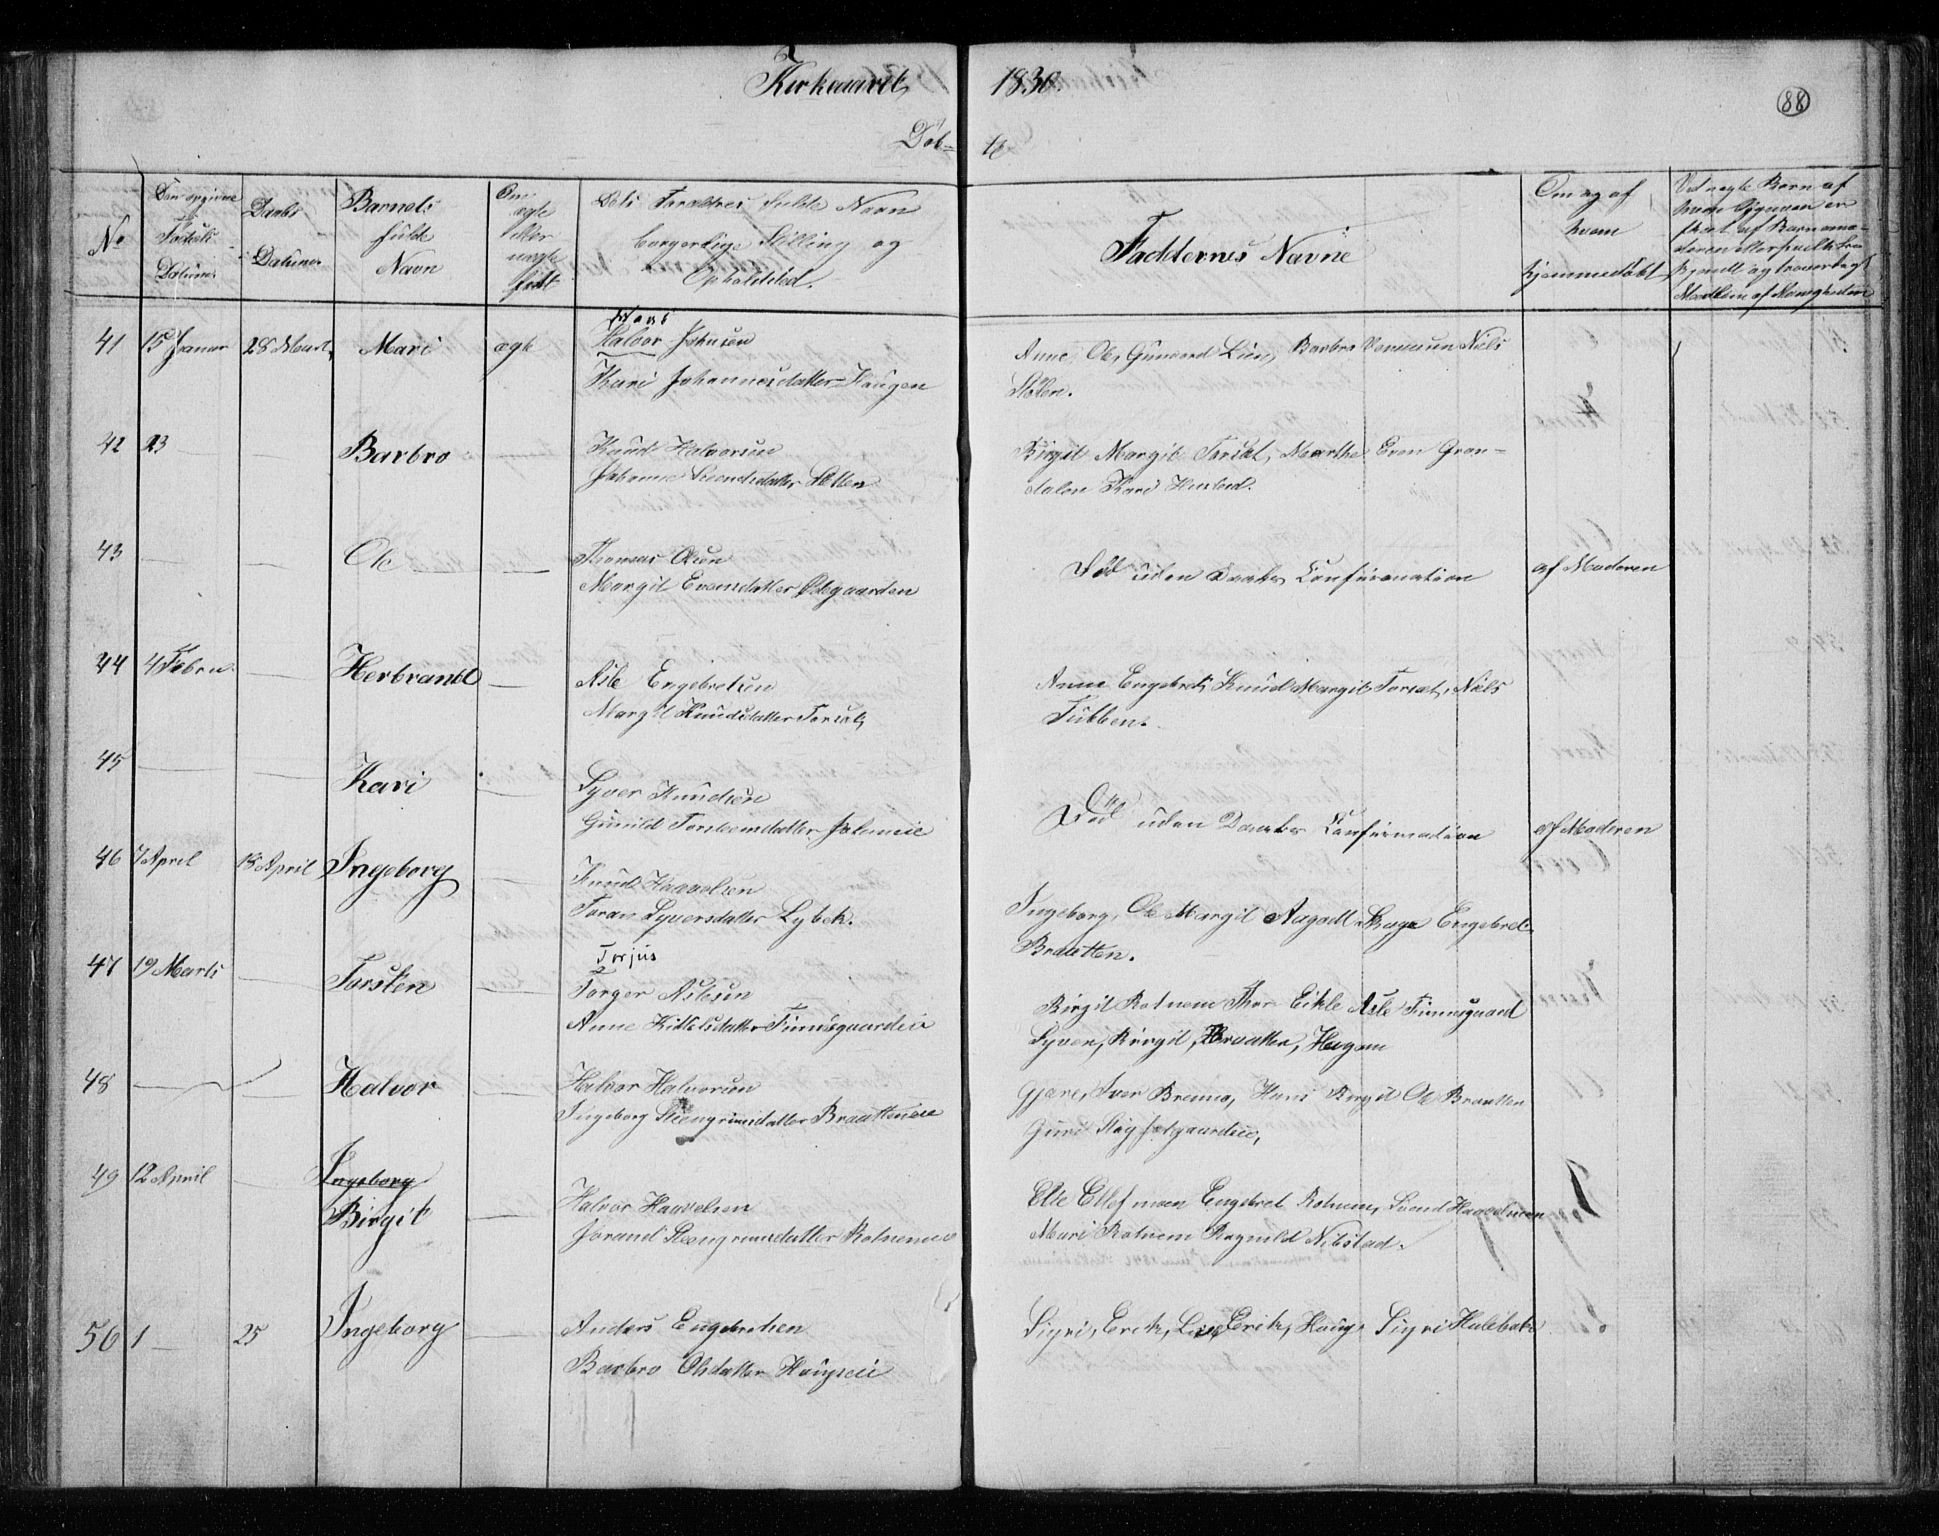 Kirkeaaret 1830.
88
Døb- te
No
Den opgivne
Fødsels
Datum
Daabs
Datum
Barnets
fulde
Navn
Om
ægte
eller
uægte
født
Dets Forældres fulde Navn
borgerlige Stilling og
Opholdsted.
Faddernes Navne
Om og af
hvem
hjemmedøbt
41 15 Januar 28 Marts Mari ægte
Halvor Johnsen
Kari Johannesdatter Haugen
Anne, Ole, Gunvord Lien, Barbro Niels
Stølen.
42 23 — — Barbro —
Knud Halvorsen
Johanne Svendsdatter Sletten
Birgit Margit Torset, Marthe Even Grøn-
dalen Kari
43 — — Ole —
Thomas Olsen
Margit Evensdatter Ødegaarden
Død uden Daabs Confirmation af Moderen
44 4 Febru. — Herbrand —
Asle Engebretsen
Margit Knudsdatter Torset
Anne Engebret, Knud Margit Torset, Niels
Tubben.
45 — — Kari —
Syver Knudsen
Gunild Torsteensdatter
Død uden Daabs Confirmation af Moderen
46 7 April 18 April Ingeborg —
Knud Haavelsen
Toran Syversdatter Lybek.
Ingeborg, Ole Margit Aagodt Skaga Engebret
Braatten.
47 19 Marts — Torsten —
Torjus
Torger Aslesen
Anne Kittelsdatter Finnesgaarden
Birgit Rotnem Thor Eikle Asle Finnesgaard
Syver, Birgit, Braatten, Hagen
48 — — Halvor —
Halvor Halvorsen
Ingeborg Steengrimsdatter Braattenen
Iver Brenno, Hans Birgit Ole Braatten
Guri
49 12 April — Ingeborg
Birgit —
Halvor Haavelsen
Jorand Steengrimsdatter Rotnemen
Else Ellef moen Engebret Rotnem, Svend Haavelmoen
Mari Rotnem Ragnild Nibstad.
50 1 — 25 Ingeborg —
Anders Engebretsen
Barbro Olsdatter Haugen
Sigri, Erik, Lars Erik, Haug Sigri Halbakk